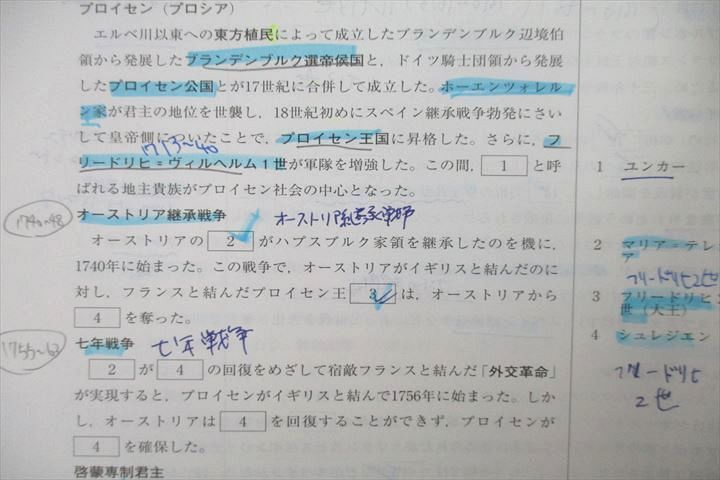 プロイセン（プロシア）
エルベ川以東への東方植民によって成立したブランデンブルク辺境伯
領から発展したブランデンブルク選帝侯国と，ドイツ騎士団領から発展
したプロイセン公国とが17世紀に合併して成立した。ホーエンツォレル
ン家が君主の地位を世襲し，18世紀初めにスペイン継承戦争勃発にさい
して皇帝側についたことで，プロイセン王国に昇格した。さらに，フ
1713~40
リードリヒ＝ヴィルヘルム1世が軍隊を増強した。この間，1と呼
ばれる地主貴族がプロイセン社会の中心となった。
1 ユンカー
1740~48
オーストリア継承戦争
オーストリア継承戦争
オーストリアの2がハプスブルク家領を継承したのを機に，
1740年に始まった。この戦争で，オーストリアがイギリスと結んだのに
対し，フランスと結んだプロイセン王3は，オーストリアから
4を奪った。
2 マリア＝テレ
ア
フリードリヒ2世
3 フリードリヒ
世（大王）
4 シュレジエン
フリードリヒ
2世
七年戦争
七年戦争
2が4の回復をめざして宿敵フランスと結んだ「外交革命」
が実現すると，プロイセンがイギリスと結んで1756年に始まった。しか
し，オーストリアは4を回復することができず，プロイセンが
4を確保した。
啓蒙専制君主